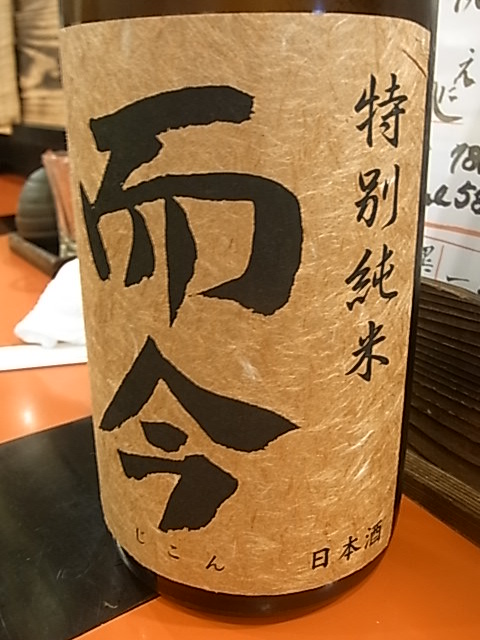 特別純米
而今
じこん
日本酒